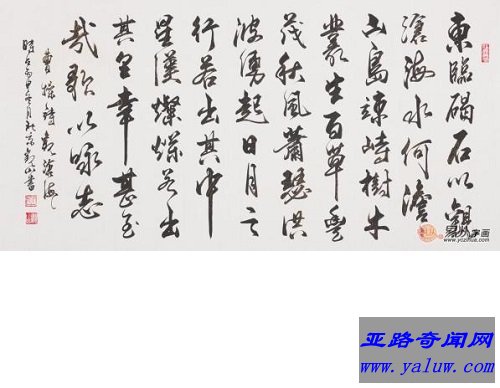 東臨碣石以觀
滄海水何澹
山島竦峙樹木
叢生百草豐
茂秋風蕭瑟洪
波湧起日月之
行若出其中
星漢燦爛若出
其里幸甚至
哉歌以咏志
曹操詩觀滄海
字画
亚路奇闻网
www.yaluw.com